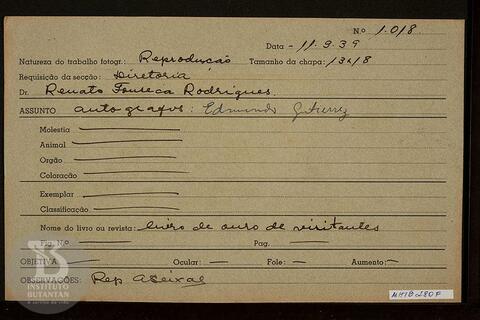 Nº 1.018.
Data - 11.9.39
Natureza do trabalho fotogr.: Reprodução Tamanho da chapa: 13x18
Requisição da secção: Diretoria
Dr. Renato Fonseca Rodrigues.
ASSUNTO autografos: Edmundo Gutierrez
Molestia
Animal
Orgão
Coloração
Exemplar
Classificação
Nome do livro ou revista: livro de ouro de visitantes
Fig. N.º Pag.
OBJETIVA Ocular: — Fole: — Aumento: —
OBSERVAÇÕES: Rep
INSTITUTO
BUTANTAN
A serviço da vida